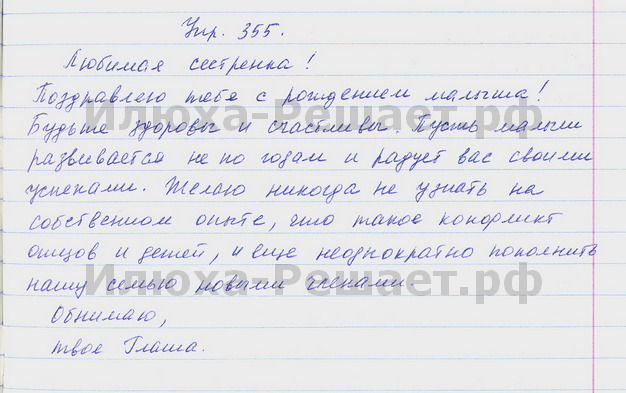 Упр. 355.
Любимая сестренка!
Поздравляю тебя с рождением малыша!
Будьте здоровы и счастливы. Пусть малыш
развивается не по годам и радует вас своими
успехами. Желаю никогда не узнать на
собственном опыте, что такое конфликт
отцов и детей, и еще неоднократно пополнить
нашу семью новыми членами.
Обнимаю,
твоя Глаша.
Илюха-Решает.рф
Илюха-Решает.рф